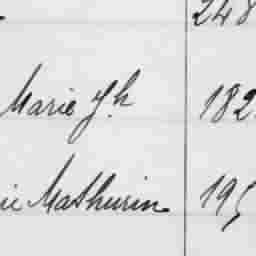 248
Marie Jh 182
ie Mathurin 195